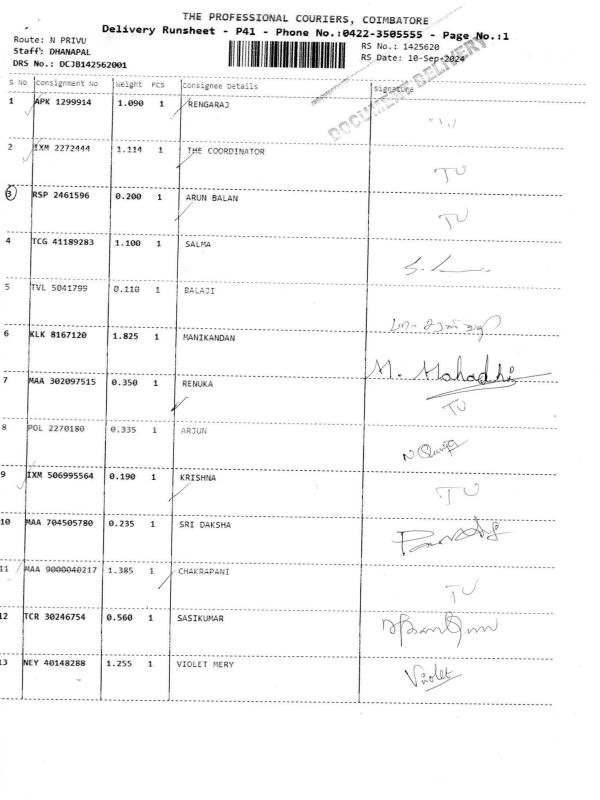 THE PROFESSIONAL COURIERS, COIMBATORE
Delivery Runsheet - P41 - Phone No.:0422-3505555 - Page No.:1
Route: N PRIVU
Staff: DHANAPAL
DRS No.: DCJB142562001
RS No.: 1425620
RS Date: 10-Sep-2024
DOCUMENT DELIVERY
S No Consignment No Weight PCS Consignee Details Signature
1 APK 1299914 1.090 1 RENGARAJ TU
2 IXM 2272444 1.114 1 THE COORDINATOR TU
3 RSP 2461596 0.200 1 ARUN BALAN TU
4 TCG 41189283 1.100 1 SALMA
5 TVL 5041799 0.110 1 BALAJI
6 KLK 8167120 1.825 1 MANIKANDAN M. Mahadhi
7 MAA 302097515 0.350 1 RENUKA TU
8 POL 2270180 0.335 1 ARJUN
9 IXM 506995564 0.190 1 KRISHNA TU
10 MAA 704505780 0.235 1 SRI DAKSHA
11 MAA 9000040217 1.385 1 CHAKRAPANI TU
12 TCR 30246754 0.560 1 SASIKUMAR
13 NEY 40148288 1.255 1 VIOLET MERY Violet